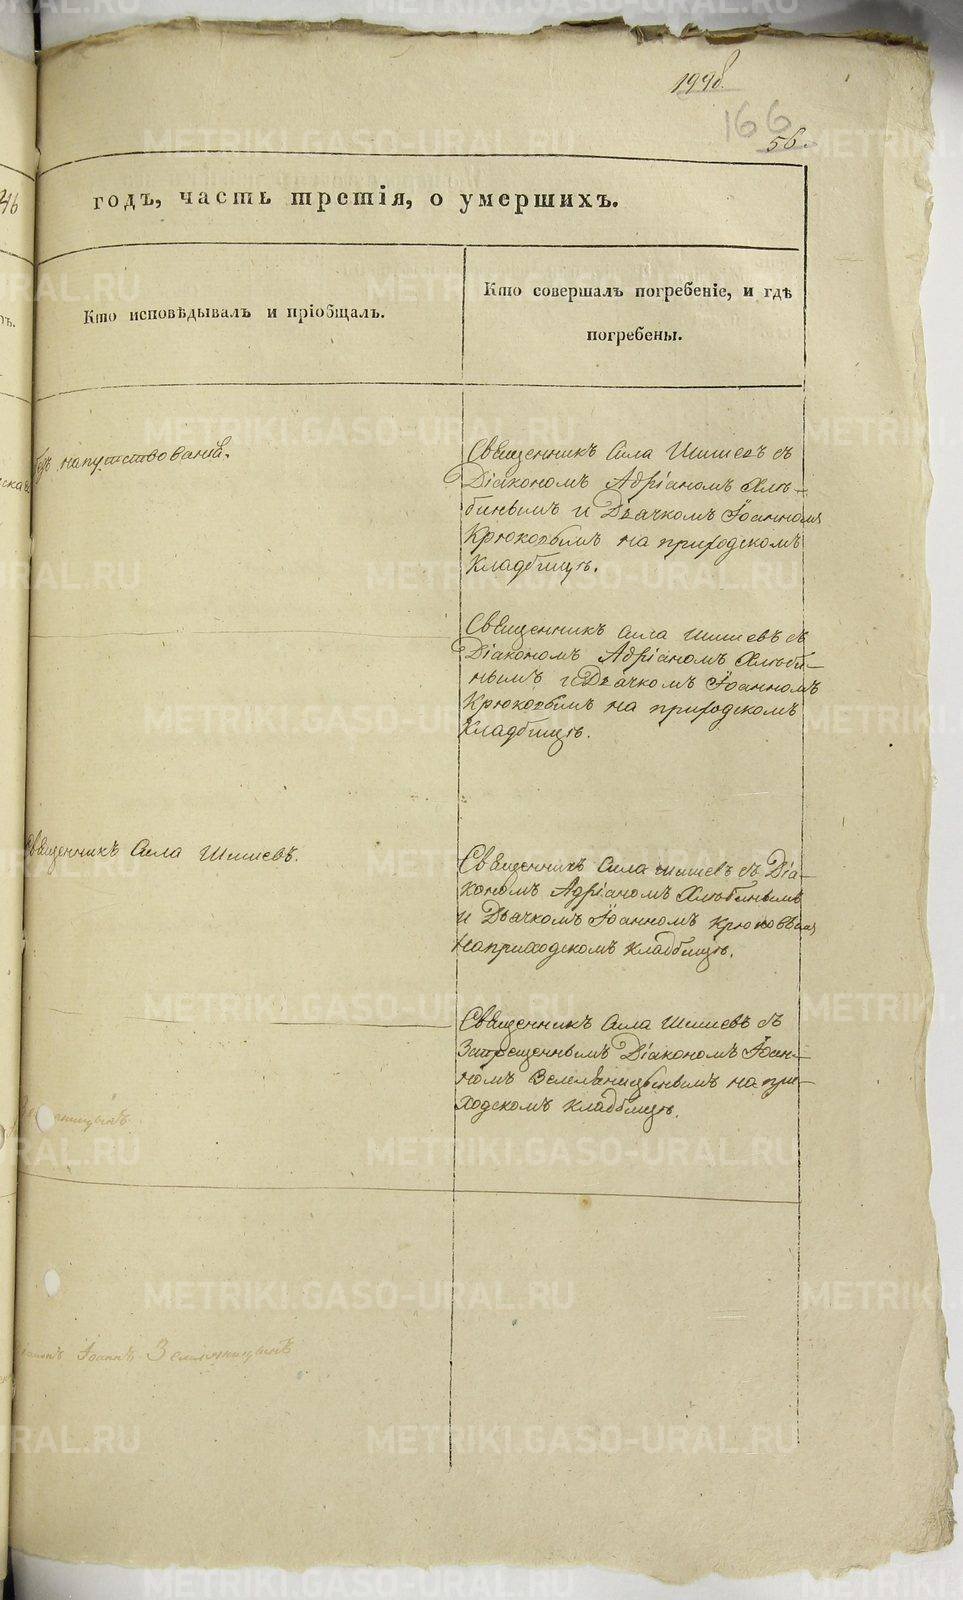 166
56.
годъ, часть третія, о умершихъ.
Кто исповѣдывалъ и пріобщалъ.
Кто совершалъ погребеніе, и гдѣ
погребены.
безъ напутствованія.
Священникъ Сила Шишевъ съ
Діакономъ Адріаномъ Хлѣ-
бинымъ и Дьячкомъ Іоанномъ
Крюковымъ на приходскомъ
Кладбищѣ.
Священникъ Сила Шишевъ съ
Діакономъ Адріаномъ Хлѣби-
нымъ и Дьячкомъ Іоанномъ
Крюковымъ на приходскомъ
Кладбищѣ.
Священникъ Сила Шишевъ.
Священникъ Сила Шишевъ съ Діа-
кономъ Адріаномъ Хлѣбинымъ
и Дьячкомъ Іоанномъ Крюковымъ
на приходскомъ кладбищѣ.
Священникъ Сила Шишевъ съ
Запрещеннымъ Діакономъ Іоан-
номъ на при-
ходскомъ кладбищѣ.
Іоаннъ
METRIKI.GASO-URAL.RU